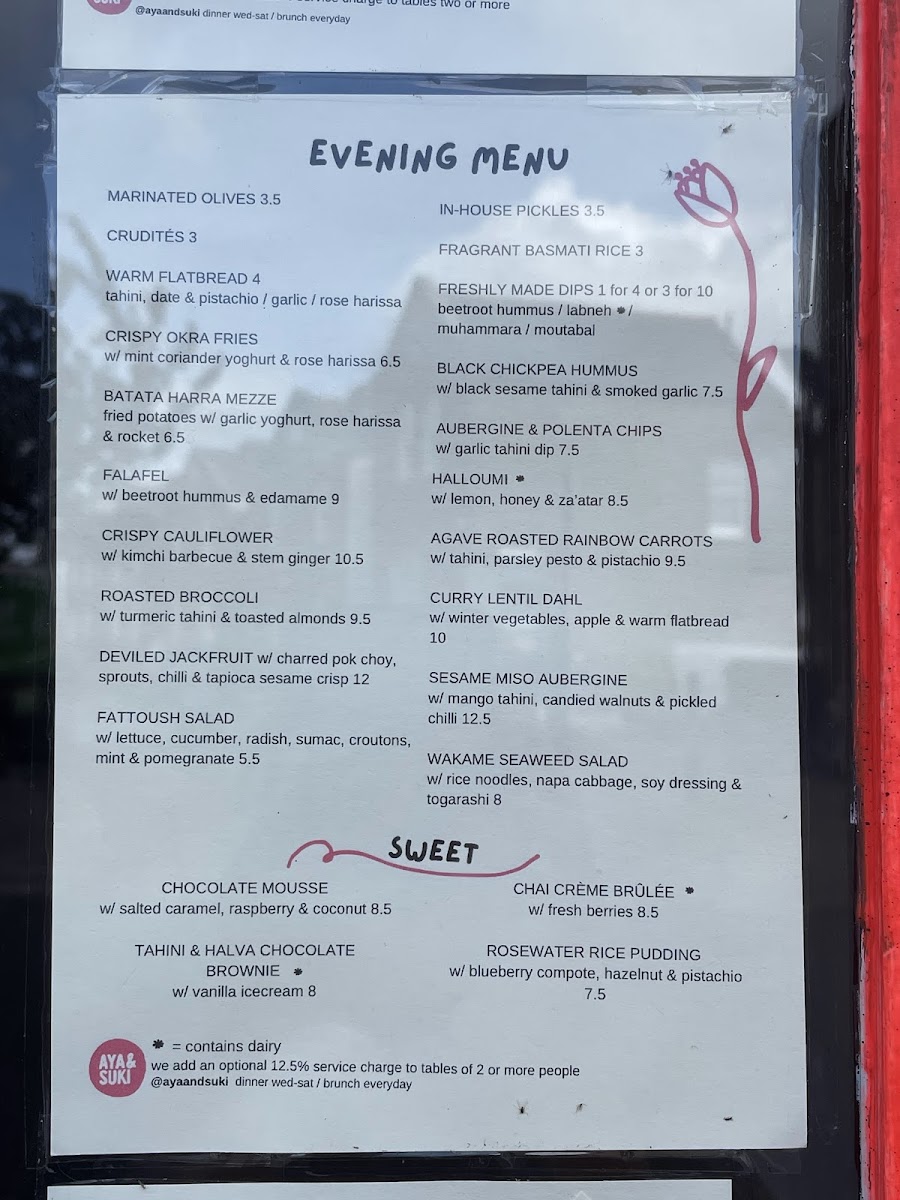 charge to tables two or more
@ayaandsuki dinner wed-sat / brunch everyday
EVENING MENU
MARINATED OLIVES 3.5
CRUDITÉS 3
WARM FLATBREAD 4
tahini, date & pistachio / garlic / rose harissa
CRISPY OKRA FRIES
w/ mint coriander yoghurt & rose harissa 6.5
BATATA HARRA MEZZE
fried potatoes w/ garlic yoghurt, rose harissa
& rocket 6.5
FALAFEL
w/ beetroot hummus & edamame 9
CRISPY CAULIFLOWER
w/ kimchi barbecue & stem ginger 10.5
ROASTED BROCCOLI
w/ turmeric tahini & toasted almonds 9.5
DEVILED JACKFRUIT w/ charred pok choy,
sprouts, chilli & tapioca sesame crisp 12
FATTOUSH SALAD
w/ lettuce, cucumber, radish, sumac, croutons,
mint & pomegranate 5.5
IN-HOUSE PICKLES 3.5
FRAGRANT BASMATI RICE 3
FRESHLY MADE DIPS 1 for 4 or 3 for 10
beetroot hummus / labneh * /
muhammara / moutabal
BLACK CHICKPEA HUMMUS
w/ black sesame tahini & smoked garlic 7.5
AUBERGINE & POLENTA CHIPS
w/ garlic tahini dip 7.5
HALLOUMI *
w/ lemon, honey & za'atar 8.5
AGAVE ROASTED RAINBOW CARROTS
w/ tahini, parsley pesto & pistachio 9.5
CURRY LENTIL DAHL
w/ winter vegetables, apple & warm flatbread
10
SESAME MISO AUBERGINE
w/ mango tahini, candied walnuts & pickled
chilli 12.5
WAKAME SEAWEED SALAD
w/ rice noodles, napa cabbage, soy dressing &
togarashi 8
SWEET
CHOCOLATE MOUSSE
w/ salted caramel, raspberry & coconut 8.5
TAHINI & HALVA CHOCOLATE
BROWNIE *
w/ vanilla icecream 8
CHAI CRÈME BRÛLÉE *
w/ fresh berries 8.5
ROSEWATER RICE PUDDING
w/ blueberry compote, hazelnut & pistachio
7.5
AYA&
SUKI
* = contains dairy
we add an optional 12.5% service charge to tables of 2 or more people
@ayaandsuki dinner wed-sat / brunch everyday